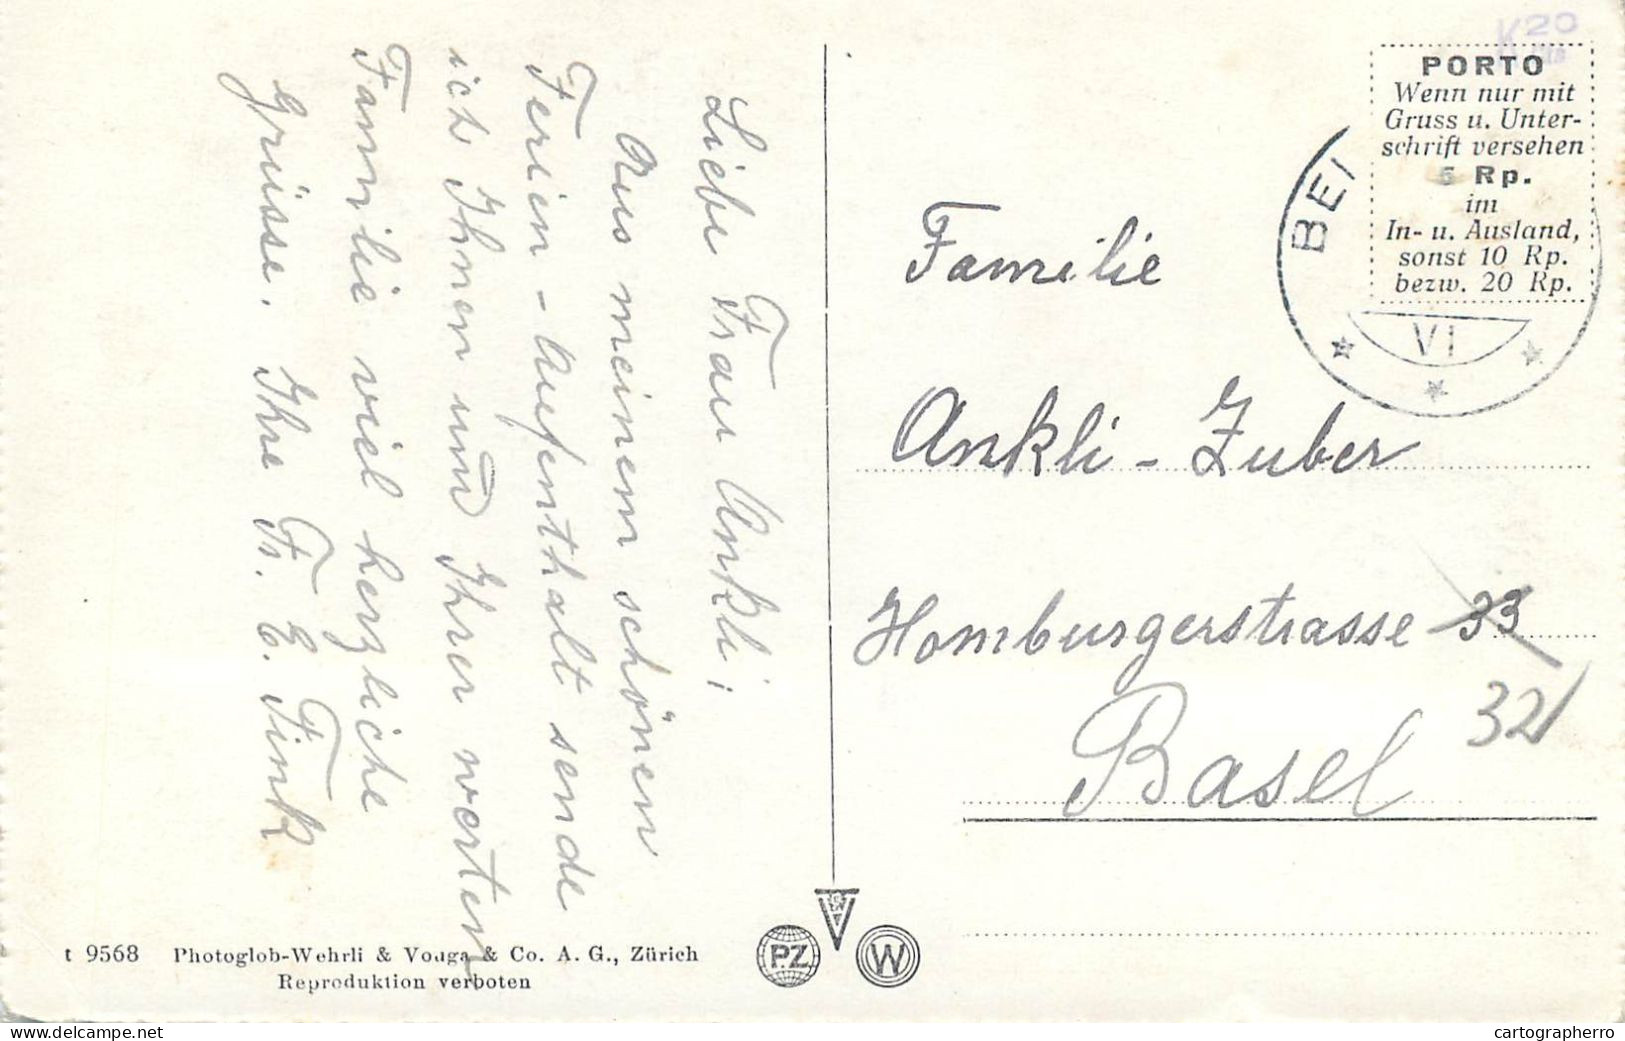 Liebe Frau Ankli;
Aus meinem schönen
Ferien-Aufenthalt sende
ich Ihnen und Ihrer werten
Familie viel herzliche
Grüsse. Ihre Fr. E. Fink
K20
PORTO
Wenn nur mit
Gruss u. Unter-
schrift versehen
5 Rp.
im
In- u. Ausland,
sonst 10 Rp.
bezw. 20 Rp.
BEI
VI
Familie
Ankli-Zuber
Homburgerstrasse 33
32
Basel
t 9568 Photoglob-Wehrli & Vouga & Co. A. G., Zürich
Reproduktion verboten
PZ
V
W
delcampe.net
cartographerro